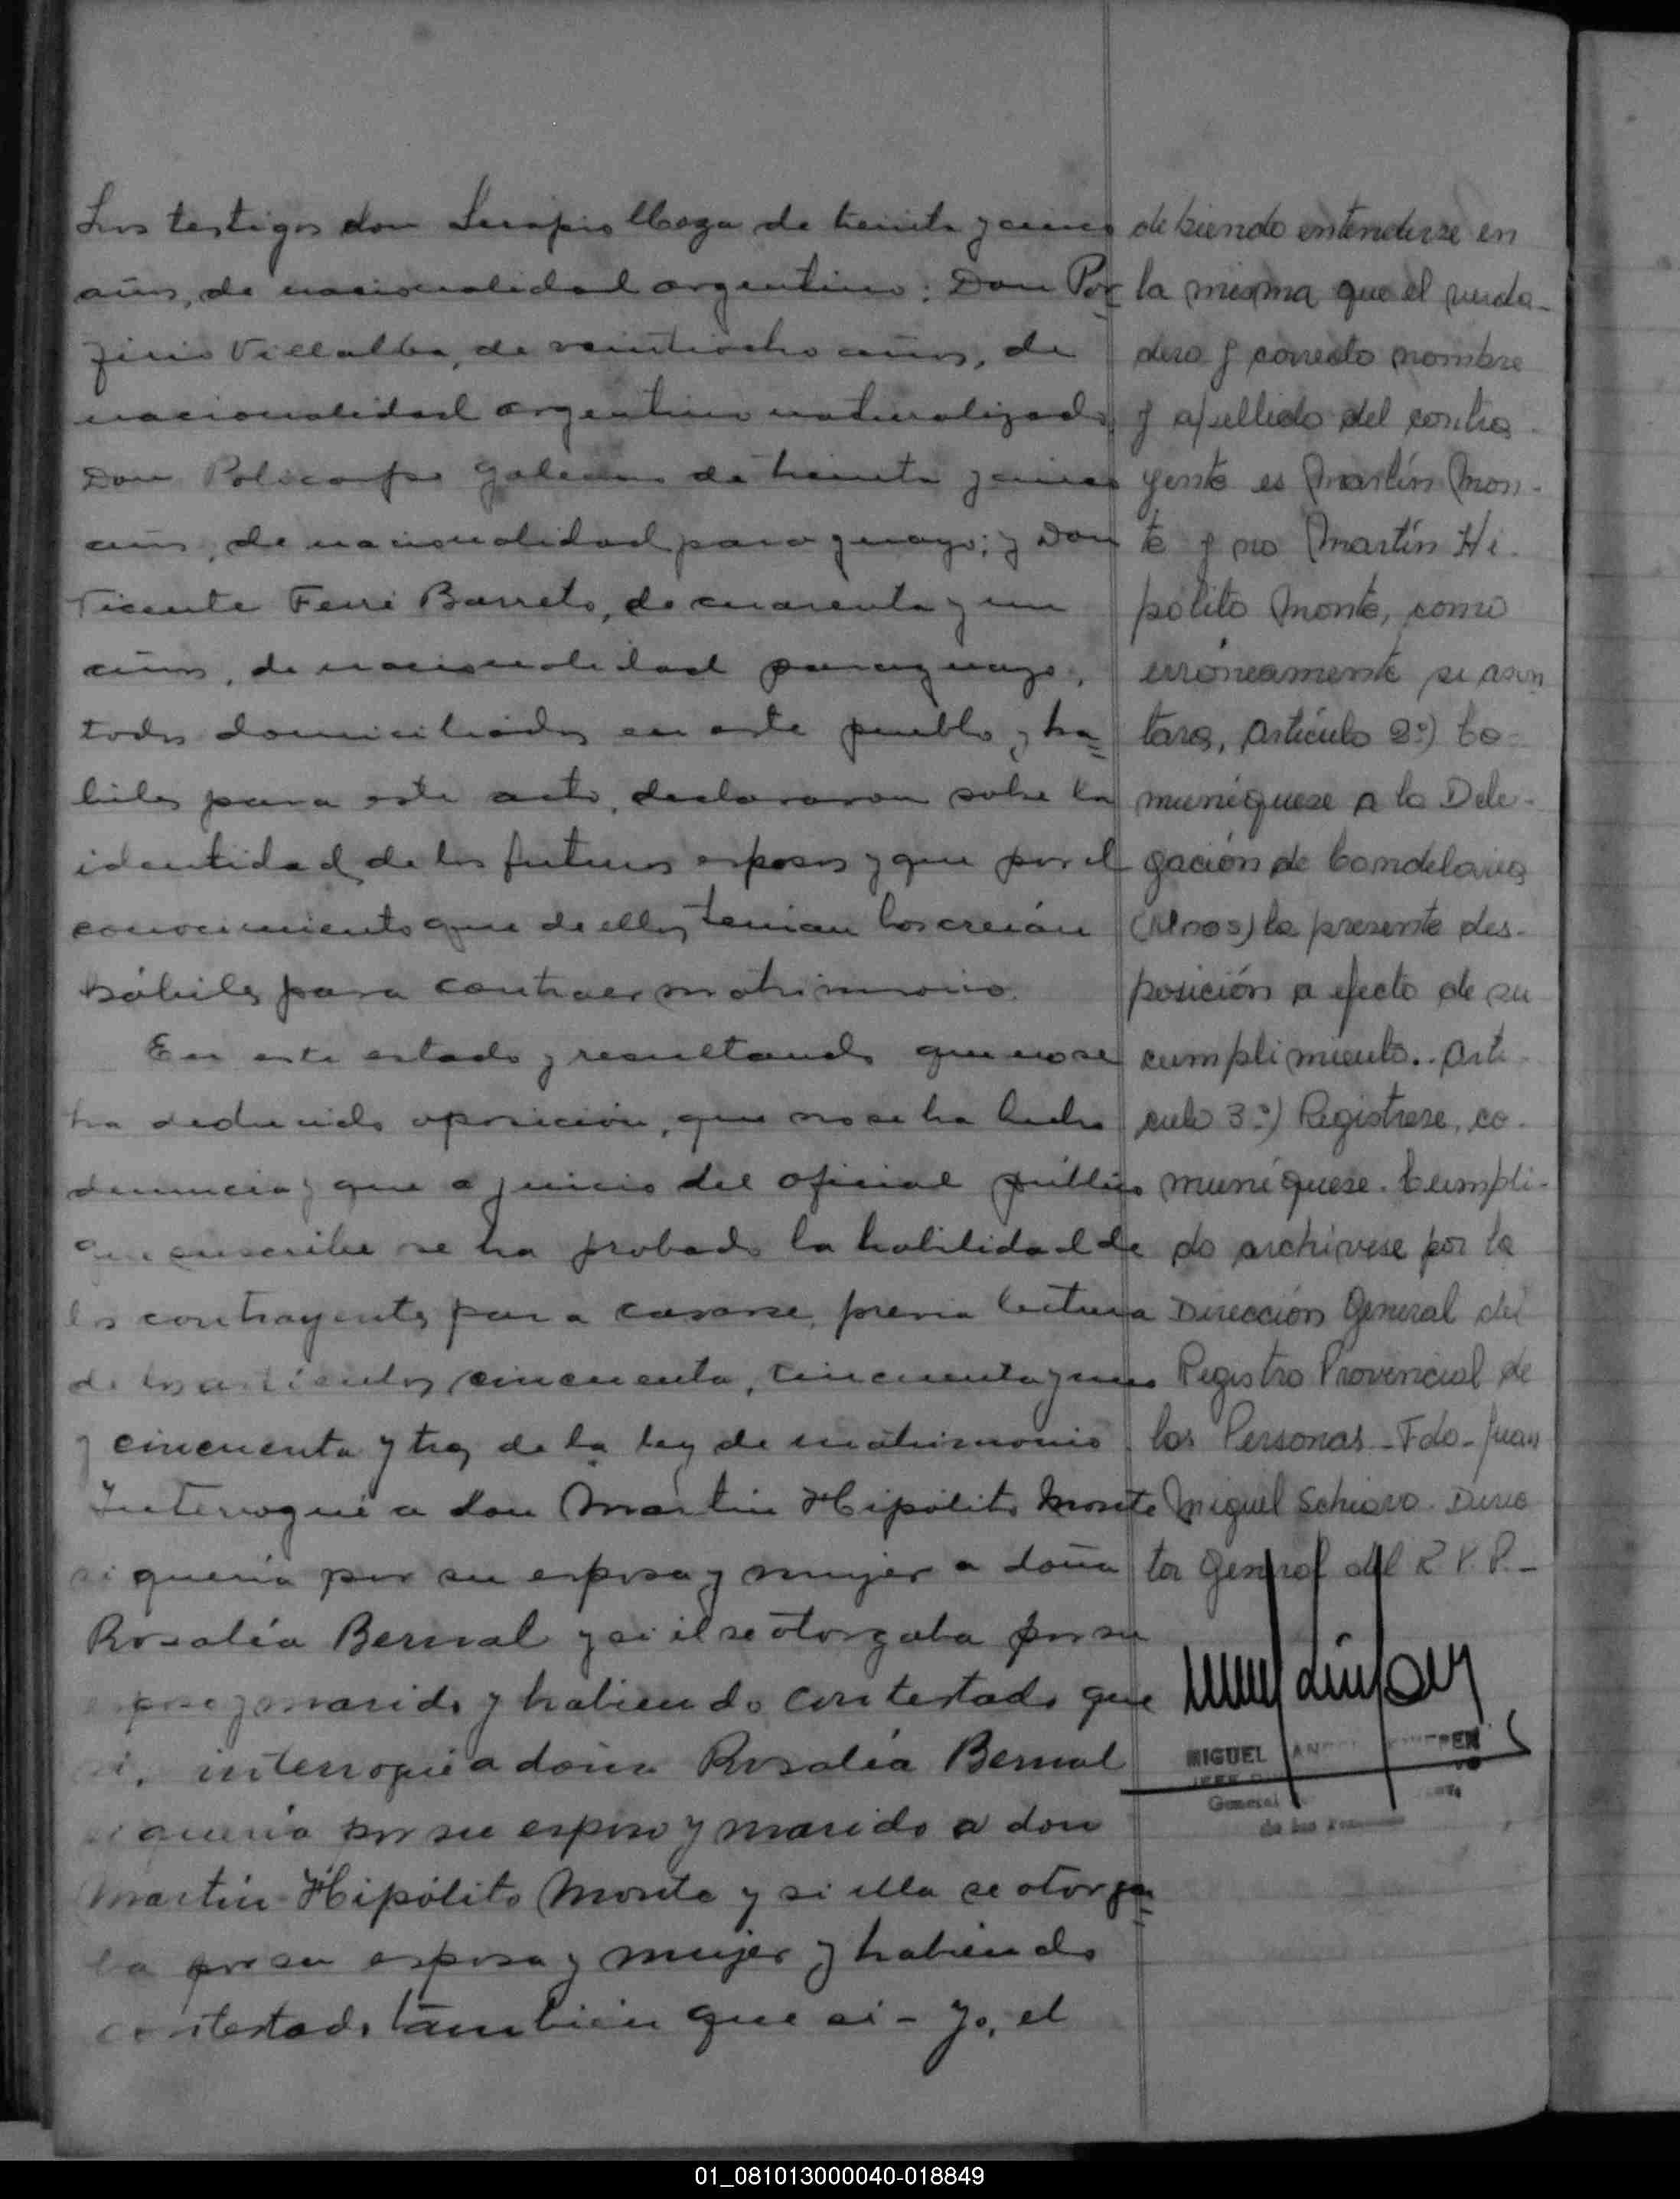 Los testigos don Serapio Meza de treinta y cinco
años, de nacionalidad argentino; Don Por
firio Villalba, de veintiocho años, de
nacionalidad argentino naturalizado
Don Policarpo Galeano de treinta y cinco
años, de nacionalidad paraguayo; y Don
Vicente Ferré Barreto, de cuarenta y un
años, de nacionalidad paraguayo,
todos domiciliados en este pueblo y há=
biles para este acto, declararon sobre la
identidad de los futuros esposos y que por el
conocimiento que de ellos tenían los creían
hábiles para contraer matrimonio.
En este estado y resultando que no se
ha deducido oposición, que no se ha hecho
denuncia y que a juicio del oficial público
que suscribe se ha probado la habilidad de
los contrayentes para casarse, previa lectura
de los artículos cincuenta, cincuenta y uno
y cincuenta y tres de la ley de matrimonio.
Interrogué a don Martín Hipólito Monte
si quería por su esposa y mujer a doña
Rosalía Bernal y si él se otorgaba por su
esposo y marido y habiendo contestado que
si, interrogué a doña Rosalía Bernal
si quería por su esposo y marido a don
Martín Hipólito Monte y si ella se otorga=
ba por su esposa y mujer y habiendo
contestado también que si - Yo, el
debiendo entenderse en
la misma que el verda-
dero y correcto nombre
y apellido del contra-
yente es Martín Mon-
te y no Martín Hi-
pólito Monte, como
erróneamente se asen
tara, Artículo 2º) Co-
muníquese a la Dele-
gación de Candelaria
(Mnes) la presente dis-
posición a efecto de su
cumplimiento.. Artí-
culo 3º) Regístrese, co-
muníquese. Cumpli-
do archívese por la
Dirección General del
Registro Provincial de
las Personas - Fdo - Juan
Miguel Schiavo. Direc
tor General del R.P.P.-
MIGUEL
General
de las Personas
01_081013000040-018849